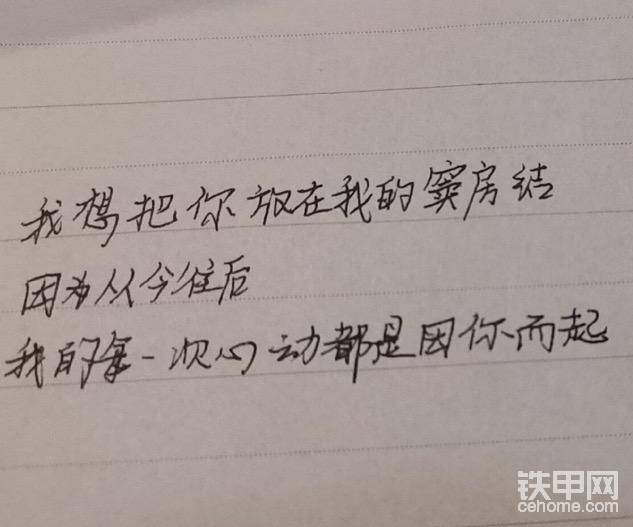 我想把你放在我的窦房结
因为从今往后
我的每一次心动都是因你而起
铁甲网
cehome.com